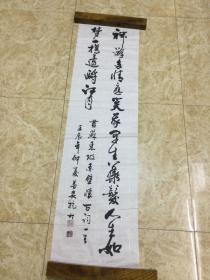 神游多情应笑我早生华发人生如
梦一樽还酹江月
书苏东坡赤壁怀古词一首
壬辰年仲夏